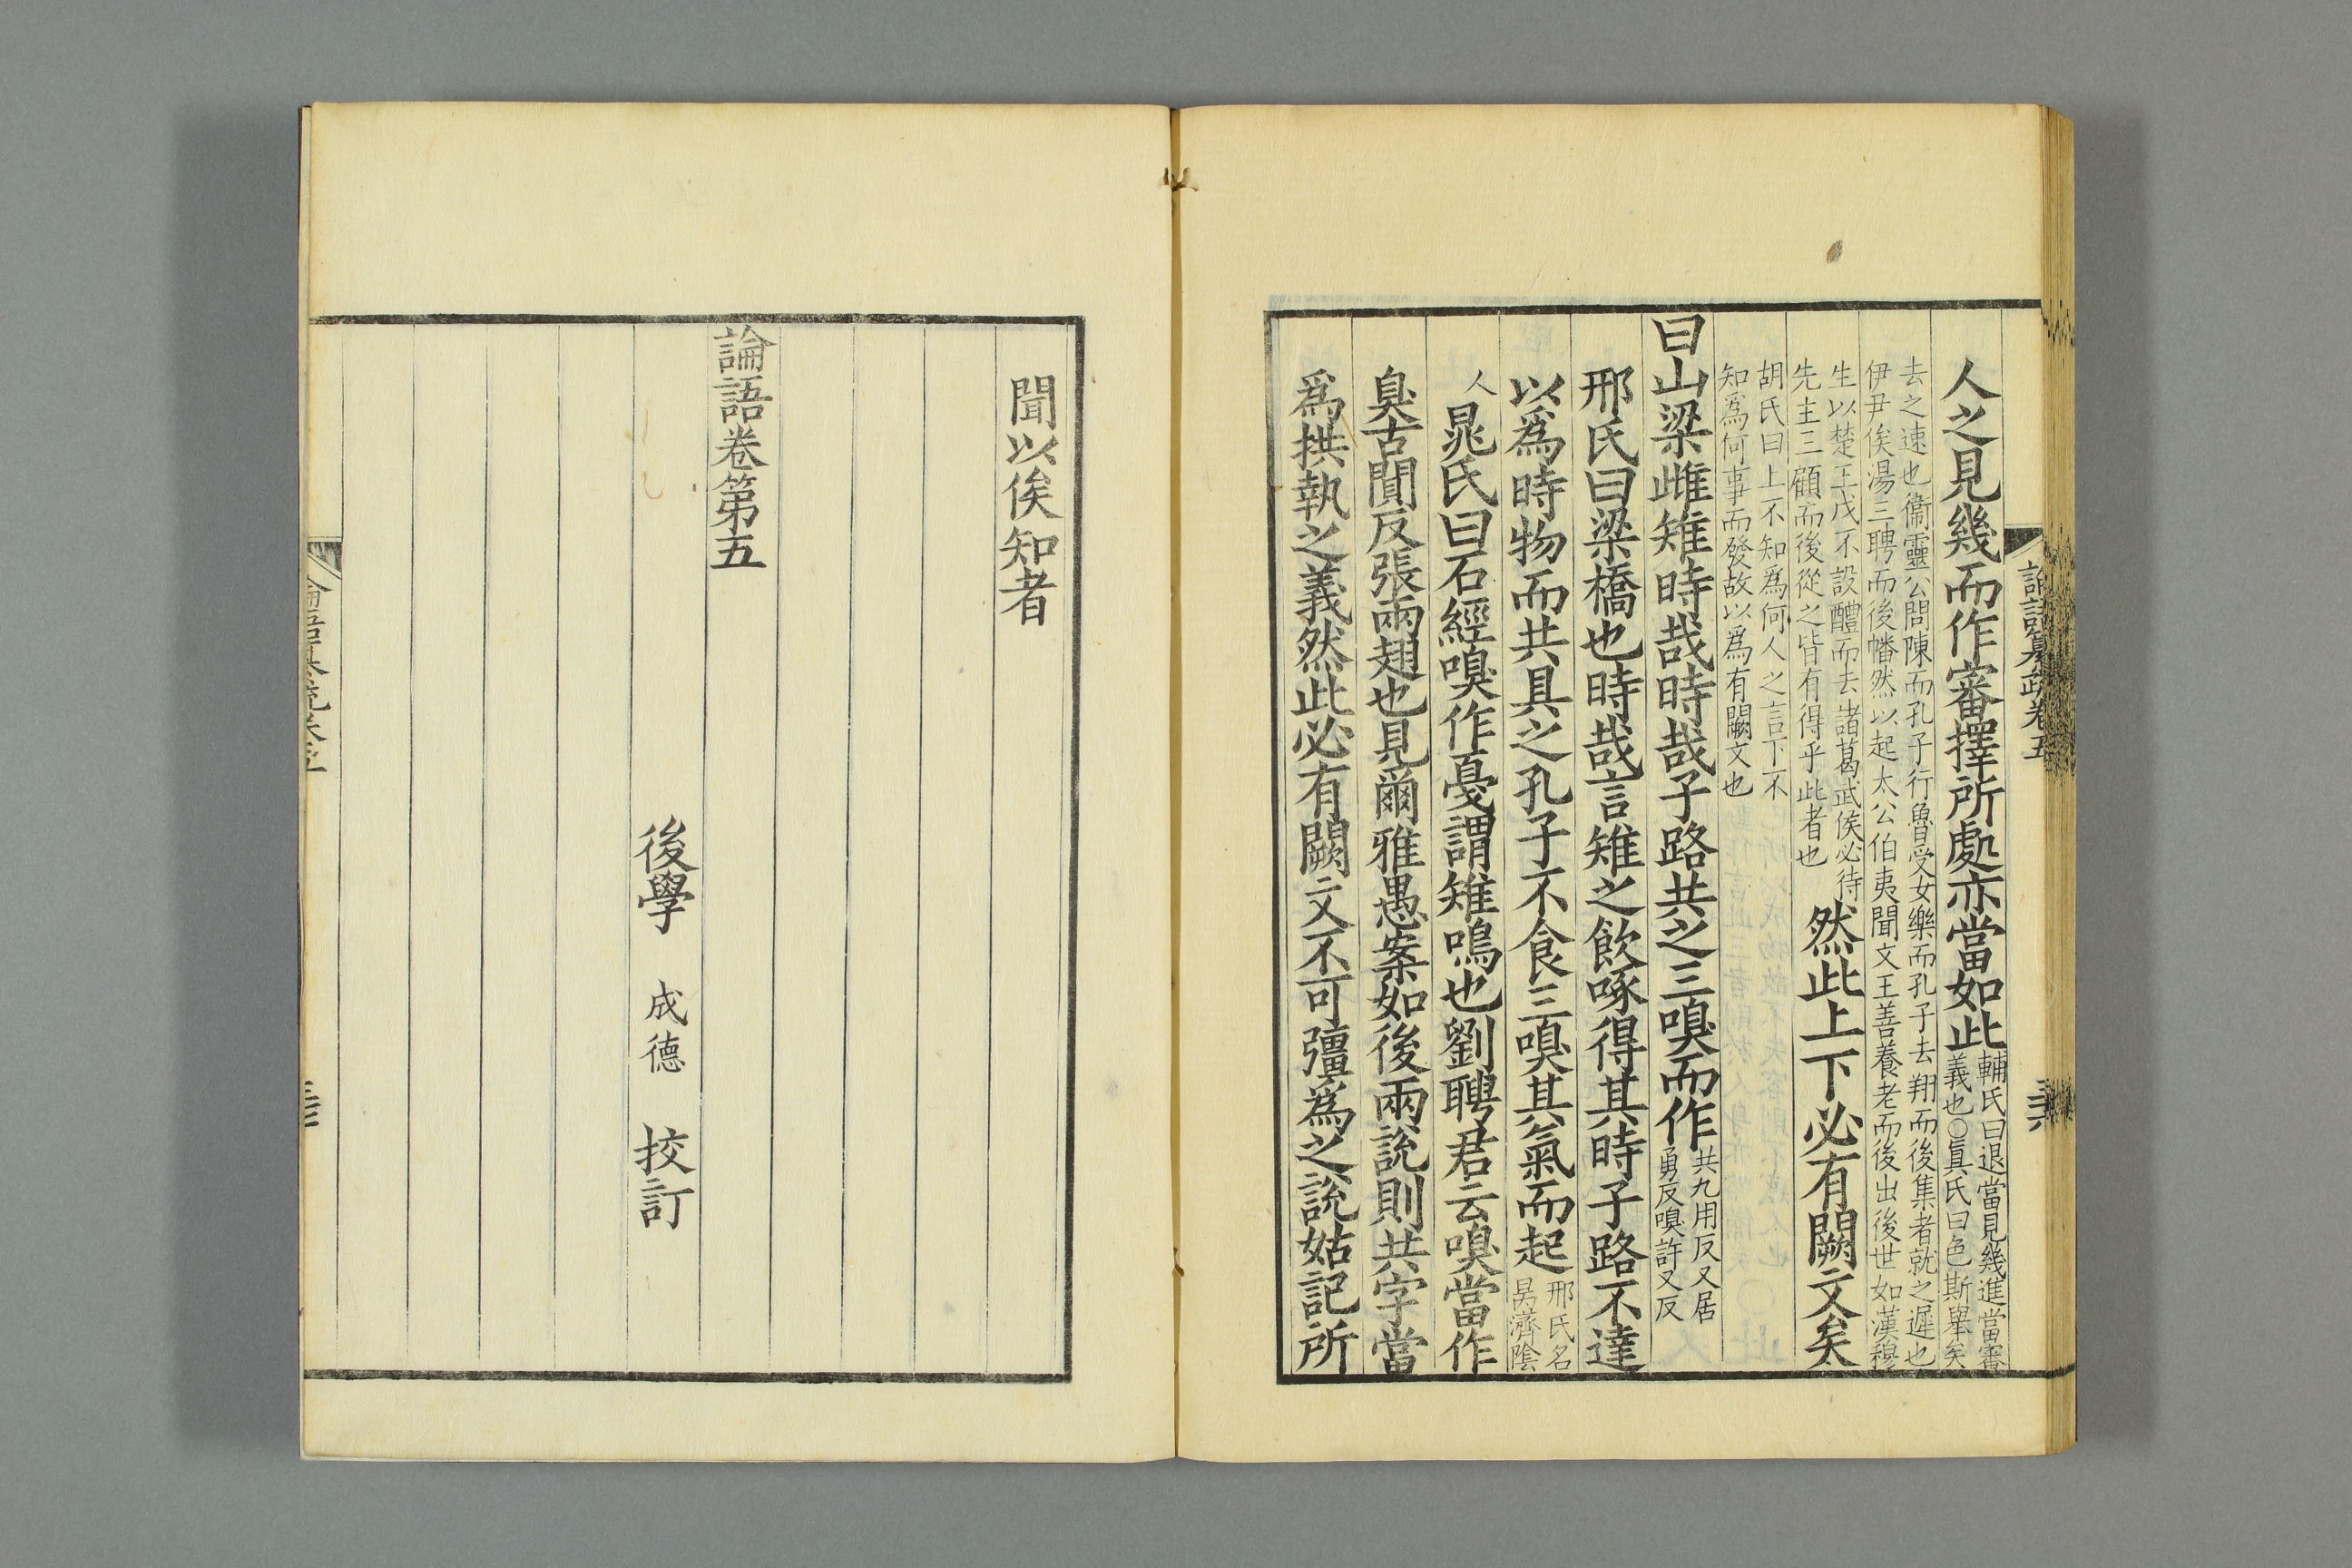 論語纂疏卷五
人之見幾而作審擇所處亦當如此輔氏曰退當見幾進當審
義也○眞氏曰色斯舉矣
去之速也衞靈公問陳而孔子行魯受女樂而孔子去翔而後集者就之遲也
伊尹俟湯三聘而後幡然以起太公伯夷聞文王善養老而後出後世如漢穆
生以楚王戊不設醴而去諸葛武侯必待
先主三顧而後從之皆有得乎此者也
然此上下必有闕文矣
胡氏曰上不知爲何人之言下不
知爲何事而發故以爲有闕文也
曰山梁雌雉時哉時哉子路共之三嗅而作共九用反又居
勇反嗅許又反
邢氏曰梁橋也時哉言雉之飲啄得其時子路不達
以爲時物而共具之孔子不食三嗅其氣而起邢氏名
昺濟陰
人晁氏曰石經嗅作戞謂雉鳴也劉聘君云嗅當作
狊古闃反張兩翅也見爾雅愚案如後兩說則共字當
爲拱執之義然此必有闕文不可彊爲之說姑記所
聞以俟知者
論語卷第五
後學 成德 挍訂
論語纂疏卷五